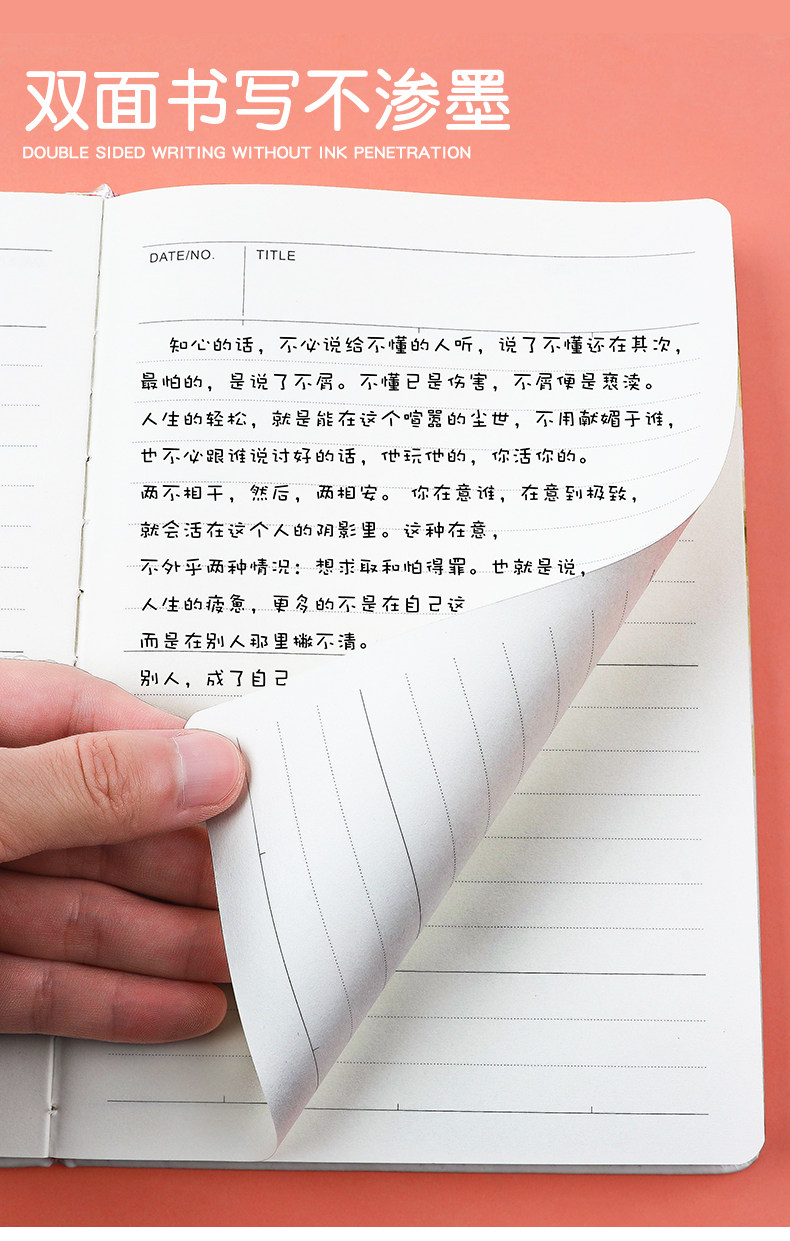 双面书写不渗墨
DOUBLE SIDED WRITING WITHOUT INK PENETRATION
DATE/NO.
TITLE
知心的话，不必说给不懂的人听，说了不懂还在其次，
最怕的，是说了不屑。不懂已是伤害，不屑便是亵渎。
人生的轻松，就是能在这个喧嚣的尘世，不用献媚于谁，
也不必跟谁说讨好的话，他玩他的，你活你的。
两不相干，然后，两相安。 你在意谁，在意到极致，
就会活在这个人的阴影里。这种在意，
不外乎两种情况：想求取和怕得罪。也就是说，
人生的疲惫，更多的不是在自己这
而是在别人那里撇不清。
别人，成了自己